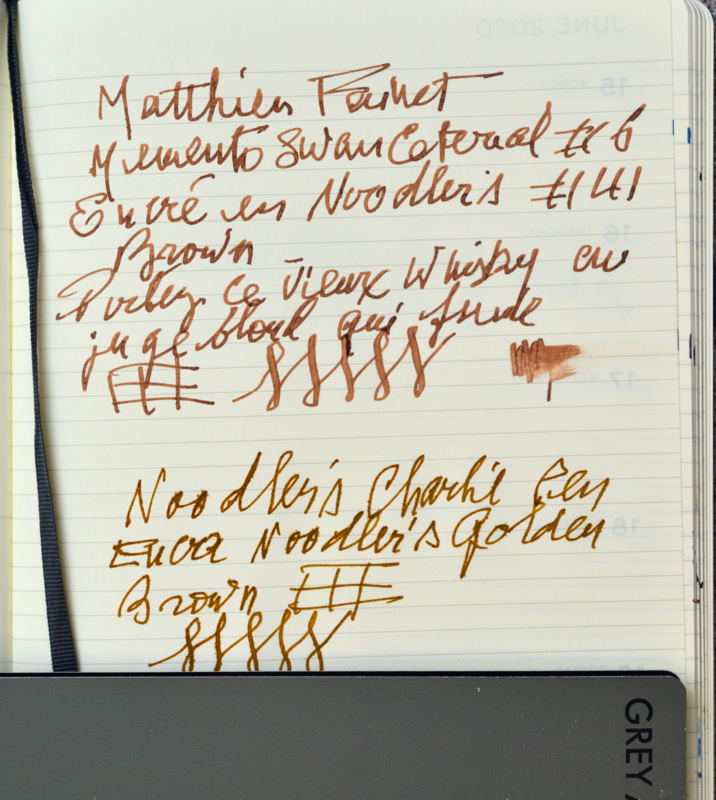 JUNE 2020
15 MONDAY
Matthieu
Memento Swan Eeternal #6
Encré en Noodler's #41
Brown
16
Portez ce vieux Whisky au
juge blond qui fume
17
Noodler's Charlie Pen
18
Encra Noodler's Golden
Brown
GREY